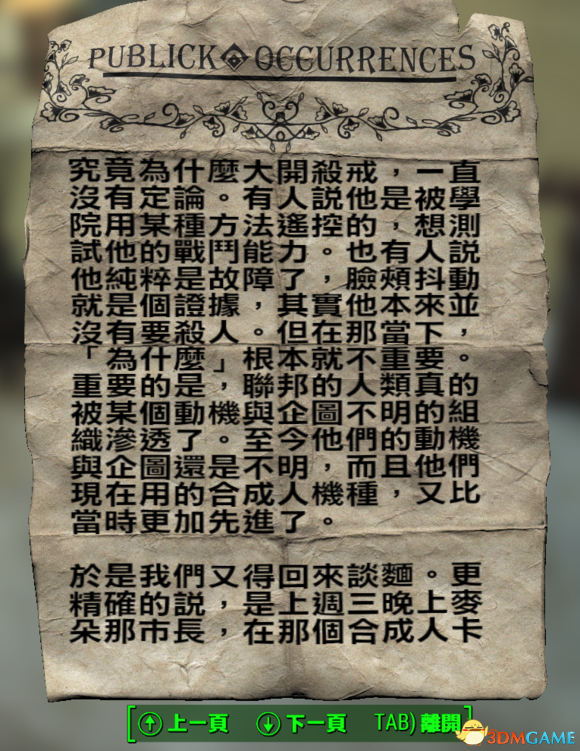 PUBLICK OCCURRENCES
究竟為什麼大開殺戒，一直
沒有定論。有人說他是被學
院用某種方法遙控的，想測
試他的戰鬥能力。也有人說
他純粹是故障了，臉頰抖動
就是個證據，其實他本來並
沒有要殺人。但在那當下，
「為什麼」根本就不重要。
重要的是，聯邦的人類真的
被某個動機與企圖不明的組
織滲透了。至今他們的動機
與企圖還是不明，而且他們
現在用的合成人機種，又比
當時更加先進了。
於是我們又得回來談麵。更
精確的說，是上週三晚上麥
朵那市長，在那個合成人卡
上一頁 下一頁 TAB) 離開
3DMGAME